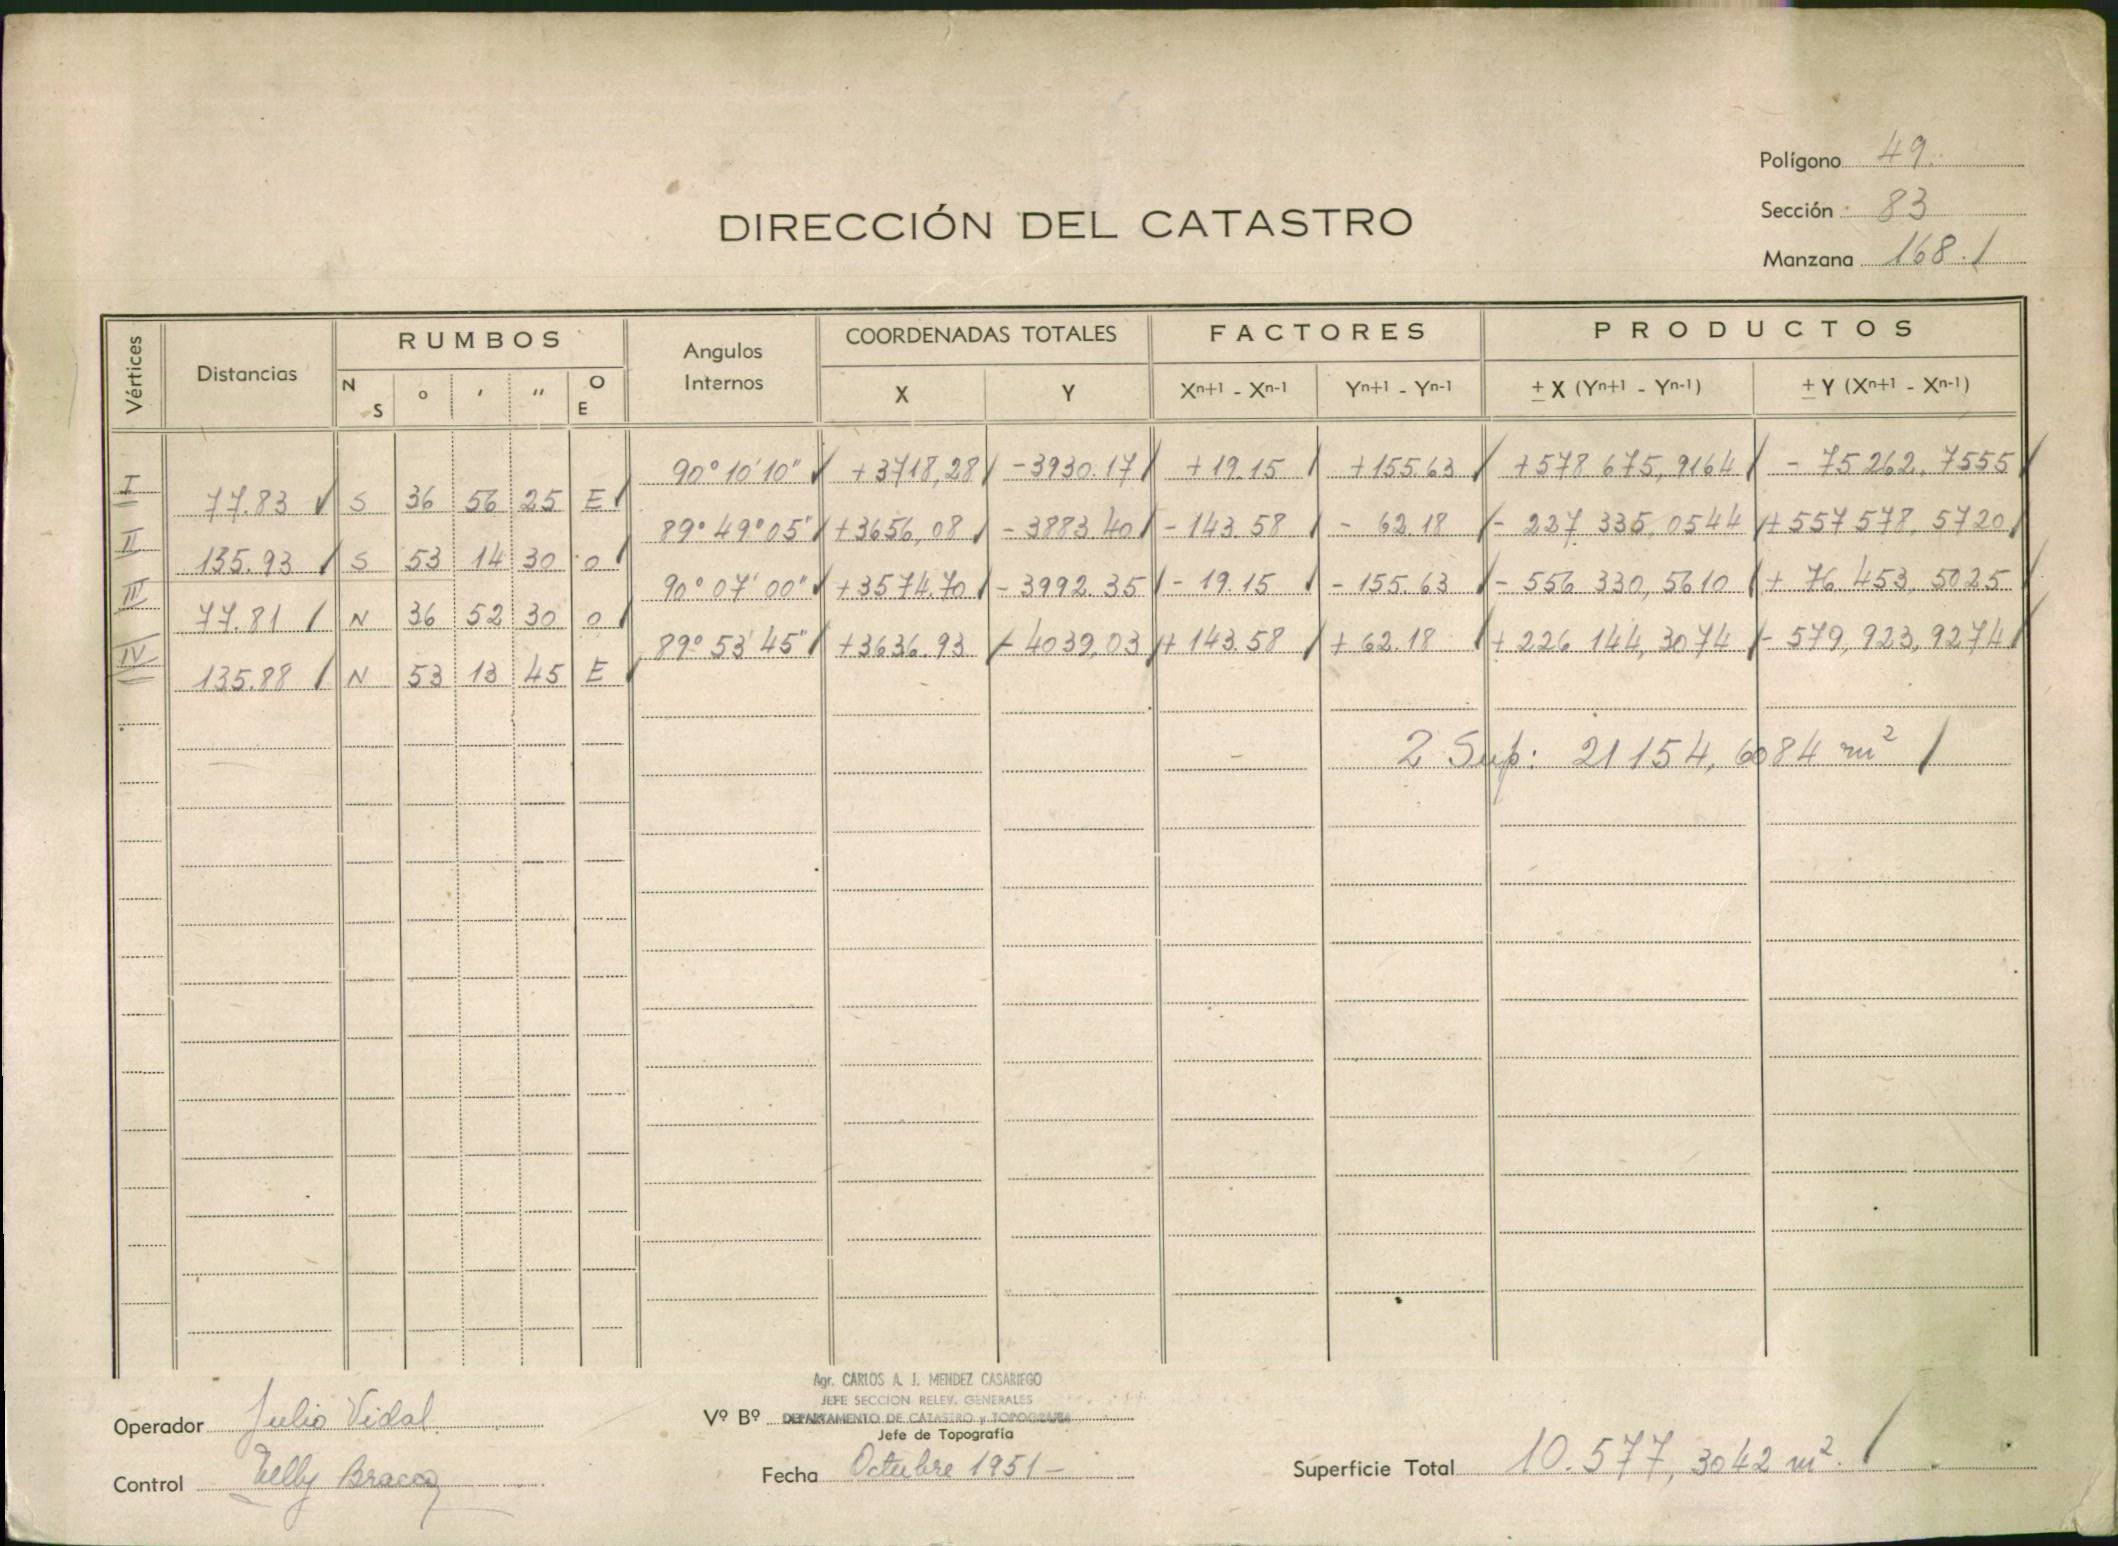 Polígono 49.
Sección 83
Manzana 168.
DIRECCIÓN DEL CATASTRO
Vértices Distancias RUMBOS Angulos Internos COORDENADAS TOTALES FACTORES PRODUCTOS
N S ° ' " O E X Y Xn+1 - Xn-1 Yn+1 - Yn-1 ± X (Yn+1 - Yn-1) ± Y (Xn+1 - Xn-1)
90° 10' 10" +3718,28 -3930.17 +19.15 +155.63 +578 675,9164 - 75 262,7555
I 77.83 S 36 56 25 E
89° 49° 05" +3656,08 -3883.40 -143.58 - 62.18 - 227 335,0544 +557 578,5720
II 135.93 S 53 14 30 O
90° 07' 00" +3574.70 -3992.35 -19.15 -155.63 - 556 330,5610 + 76 453,5025
III 77.81 N 36 52 30 O
89° 53' 45" +3636.93 -4039,03 +143.58 +62.18 +226 144,3074 - 579,923,9274
IV 135.88 N 53 13 45 E
2 Sup: 21 154,6084 m²
Agr. CARLOS A. J. MENDEZ CASARIEGO
JEFE SECCION RELEV. GENERALES
Operador Julio Vidal Vº Bº DEPARTAMENTO DE CATASTRO y TOPOGRAFIA
Jefe de Topografía
Control Nelly Bracco Fecha Octubre 1951- Superficie Total 10.577,3042 m².